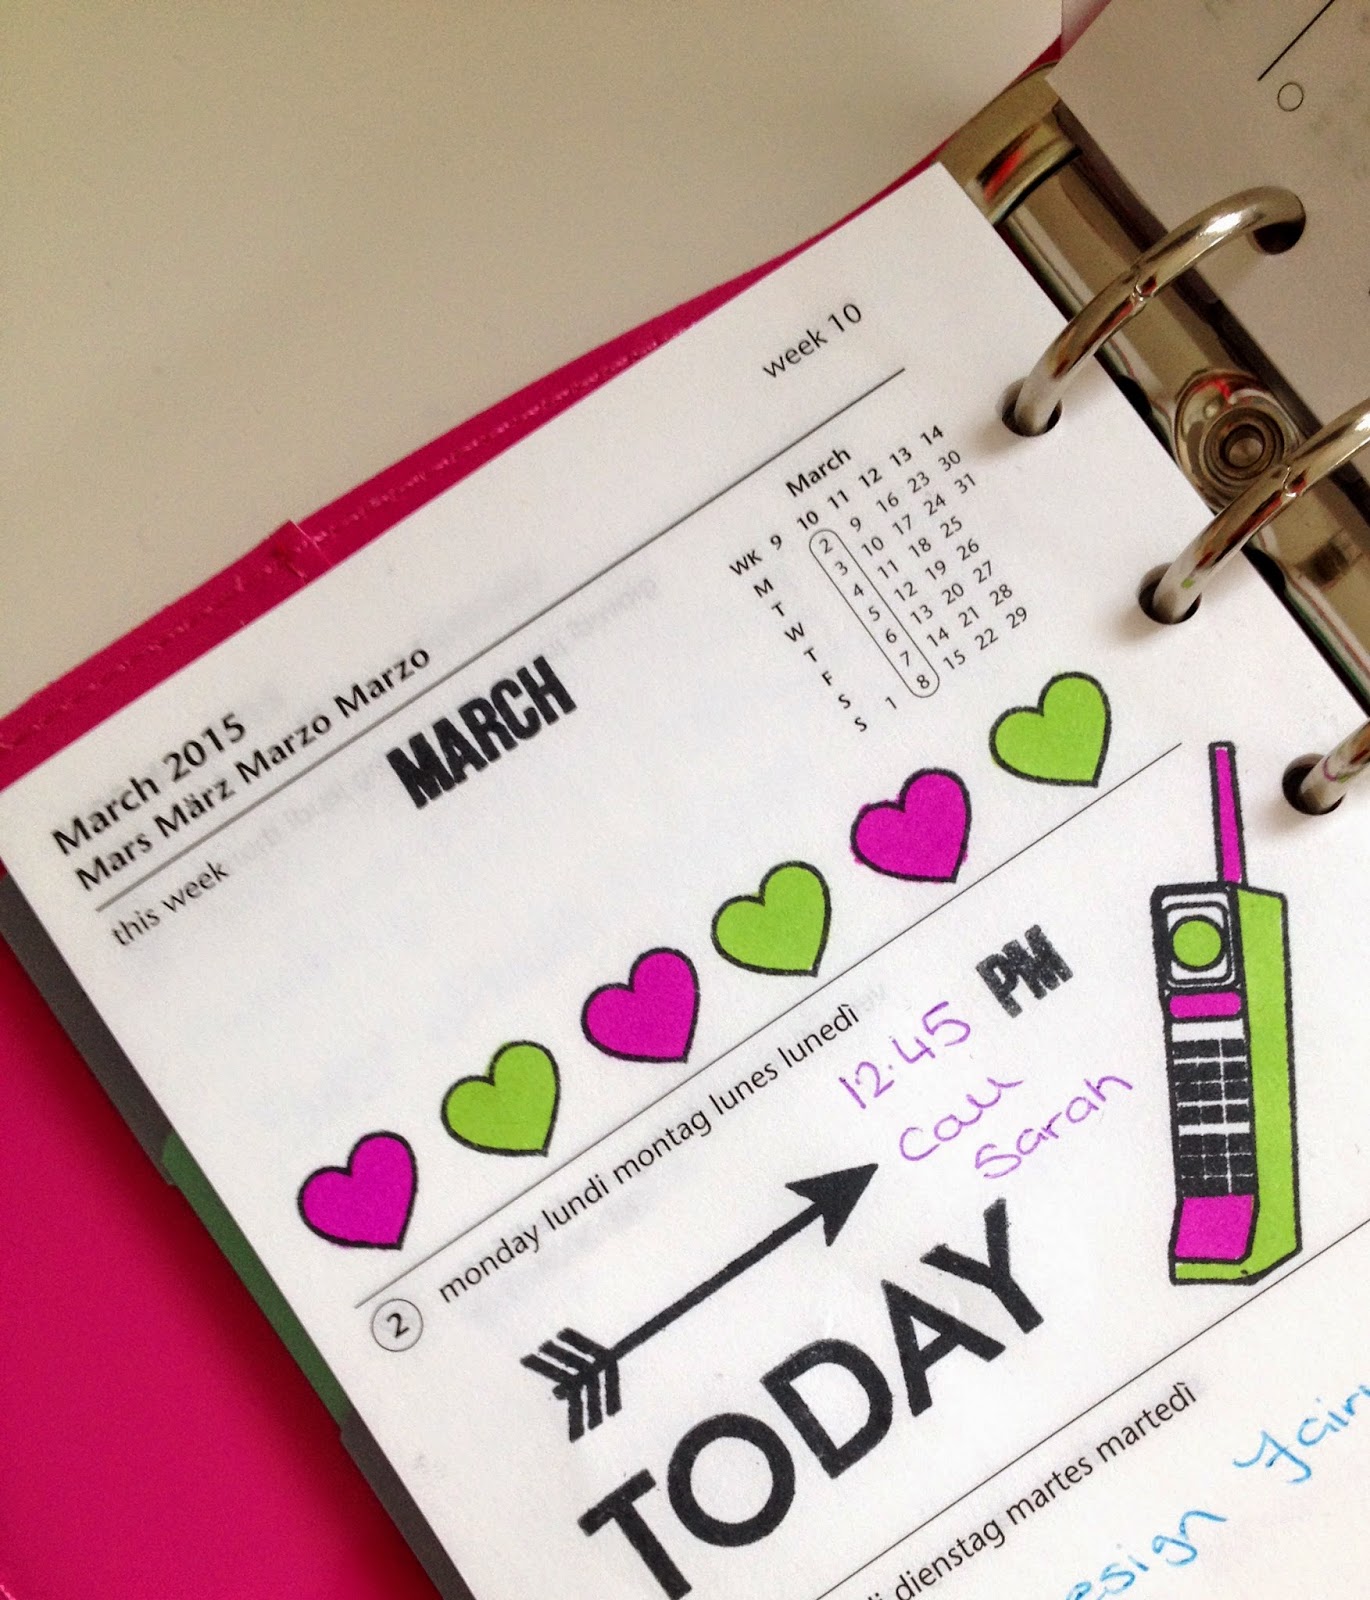 week 10
March 2015
Mars März Marzo Marzo
this week
MARCH
March
WK 9 10 11 12 13 14
M 2 9 16 23 30
T 3 10 17 24 31
W 4 11 18 25
T 5 12 19 26
F 6 13 20 27
S 7 14 21 28
S 1 8 15 22 29
2 monday lundi montag lunes lunedì
12.45 PM
Call
Sarah
TODAY
dienstag martes martedì